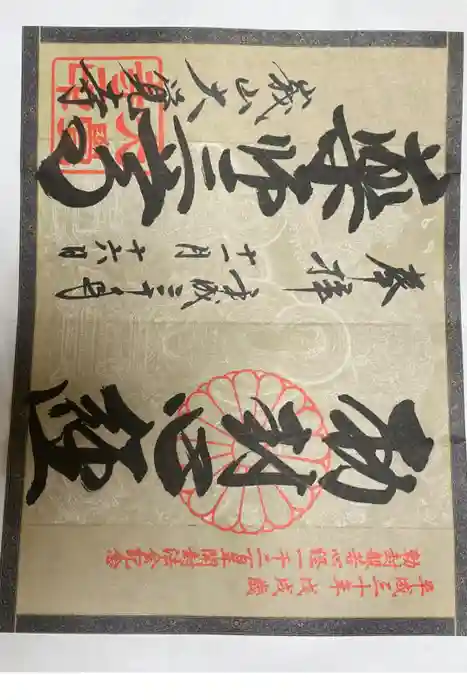 平成三十年戊戌歳
勅封般若心経一千二百年開封法会記念
勅封心経
奉拝
平成三十年
十一月十六日
薬師
嵯峨山大覚寺